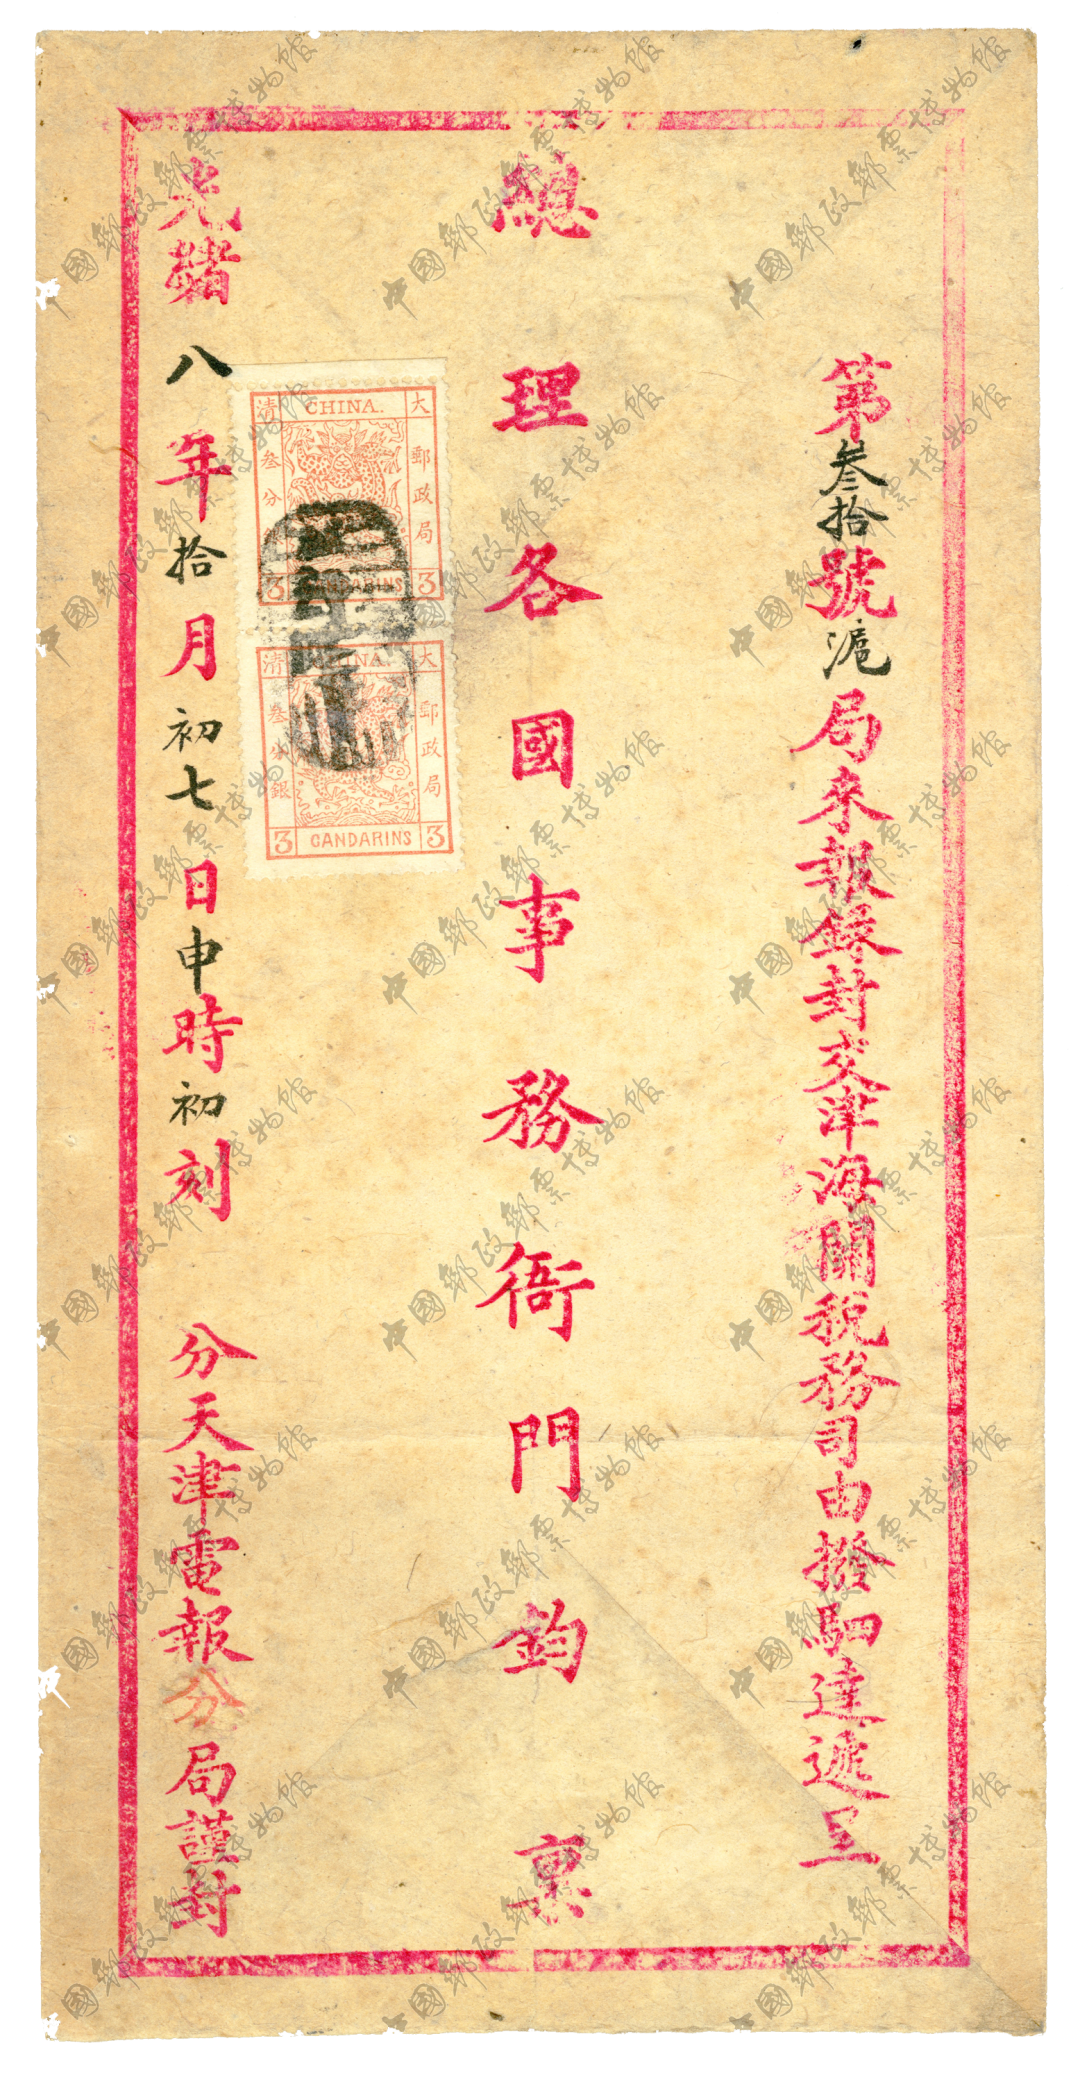 第叁拾號滬局來報錄封交津海關稅務司由撥駟達遞呈
總理各國事務衙門鈞稟
光緒八年拾月初七日申時初刻 分天津電報分局謹封
大清
CHINA.
郵政局
叁分
3 CANDARINS 3
大清
CHINA.
郵政局
叁分銀
3 CANDARINS 3
中國郵政郵票博物馆